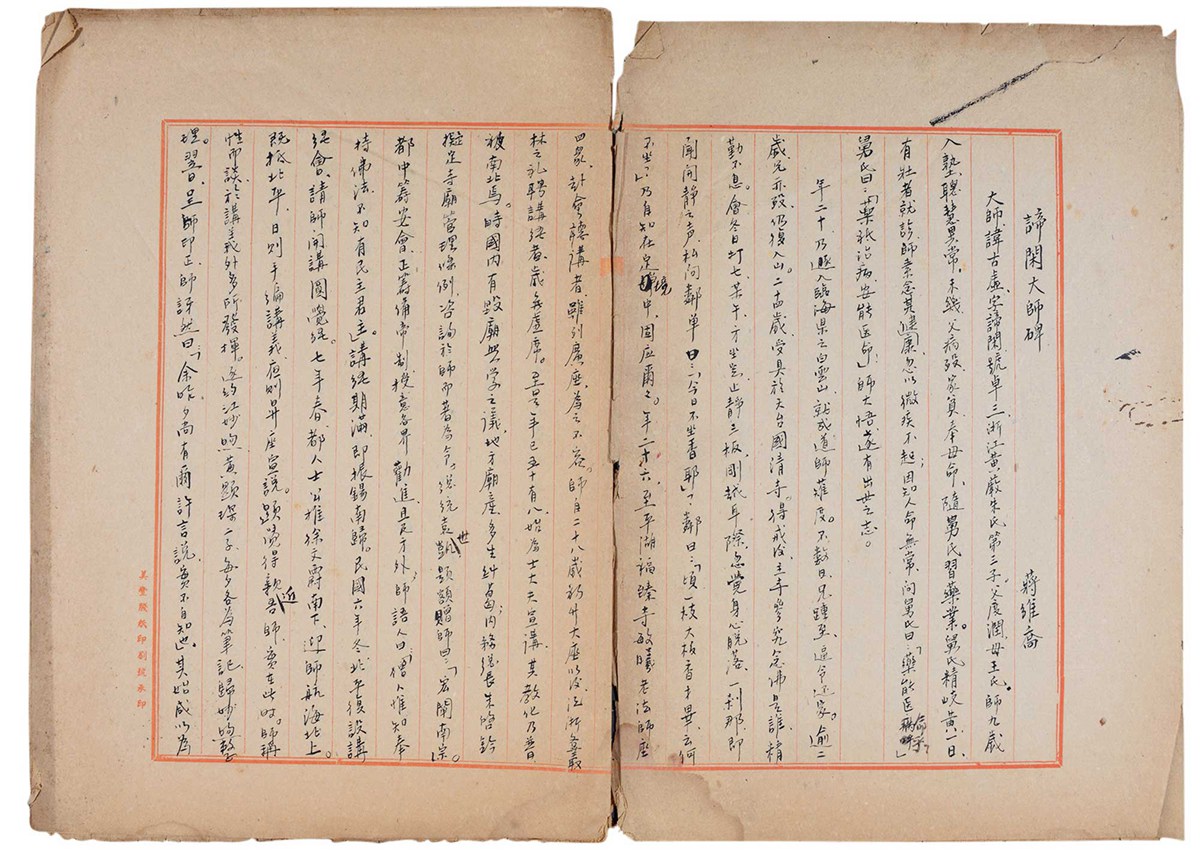 諦閑大師碑
蔣維喬
大師諱古虛,字諦閑,號卓三,浙江黃巖朱氏第三子,父度潤,母王氏。師九歲
入塾,聰慧異常,未幾父病歿,家貧,奉母命,隨舅氏習藥業。舅氏精岐黃,一日,
有壯者就診,師素念其,忽以微疾不起,因知人命無常,問舅氏曰:「藥能醫命乎?」
舅氏曰:「藥祇治病,安能医命」師大悟,遂有出世之志。
年二十,乃遯入臨海県之白雲山,就成道師薙度。不數日,兄踵至,逼令还家。逾二
歲,兄亦歿,仍復入山。二十四歲,受具於天台國清寺。得戒後,主寺參究念佛是誰,精
勤不息。會冬日打七,某午方坐定,止靜三板剛越耳際,忽覺身心脫落,一刹那,即
聞開靜之声,私问鄰单曰:「今日不坐香耶」?鄰曰:「頃一枝大板香才畢,云何
不坐?」乃自知在定境中,固应爾爾。年二十六,至平湖福臻寺敏曦老法師座
四象,赴會聽講者,雖列廣座,為之不容。師自二十八歲初升大座以後,法術叢
林之礼聘講經者,歲無虛席。至是年已五十有八,始為士大夫宣講,其教化乃普
被南北焉。時國内有毀廟興学之議,地方廟產多生糾葛,内務总長朱啓鈐
擬定寺廟管理條例,咨詢於師而著為令,总統袁世凱题額贈師曰:「宏闡南宗」。
都中籌安會,正籌備帝制,授意各界勸進,且及方外,師語人曰:「僧人惟知奉
持佛法,不知有民主君主。」講經期滿,即振錫南歸。民國六年冬,北平復設講
經會,請師開講圓覺经。七年春,都人士公推徐文霨南下,迎師航海北上。
既抵北平,日則手編講義,夜則昇座宣説。蹞覺得親近吾師,實在此时。師講
性而談,於講義外多所發揮。遂約江妙煦黃顯琛二子,每夕各為筆記,歸妙煦整
理。翌日,呈師印正,師訝然曰:「余昨夕尚有爾許言説,實不自知也。其始咸以為
美豐祥紙印刷號承印